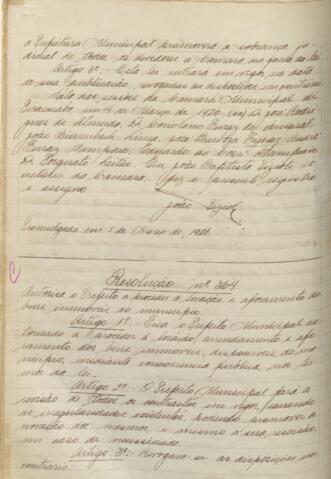 a Prefeitura Municipal promoverá a cobrança ju-
dicial de todos os devedores a Camara, na forma da lei.
Artigo 3º:- Esta lei entrará em vigor na data
de sua publicação, revogadas as disposições em contrario.
Sala das sessões da Camara Municipal de
Piracicaba, em 4 de Março de 1920. (aa) Dr. José Rodri-
gues de Almeida, Dr. Coriolano Ferraz do Amaral
João Sampaio
Dr. Torquato Leitão. Eu, João Baptista Vizioli, se-
cretario da Camara fiz o presente registro
e assigno
João Vizioli
Promulgada em 5 de Março de 1920.
Resolução nº 264
Autorisa o Prefeito a proceder a locação e aforamento dos
bens immoveis do municipio.
Artigo 1º:- Fica o Prefeito Municipal au-
torisado a proceder á locação, arrendamento e afo-
ramento dos bens immoveis, disponiveis, do mu-
nicipio, mediante concorrencia publica, nos ter-
mos da lei.
Artigo 2º:- O Prefeito Municipal fará a
revisão de todos os contractos em vigor, sanando
as irregularidades existentes, podendo promover a
novação dos mesmos, e mesmo a sua rescisão,
em caso de necessidade.
Artigo 3º:- Revogam-se as disposições em
contrario.